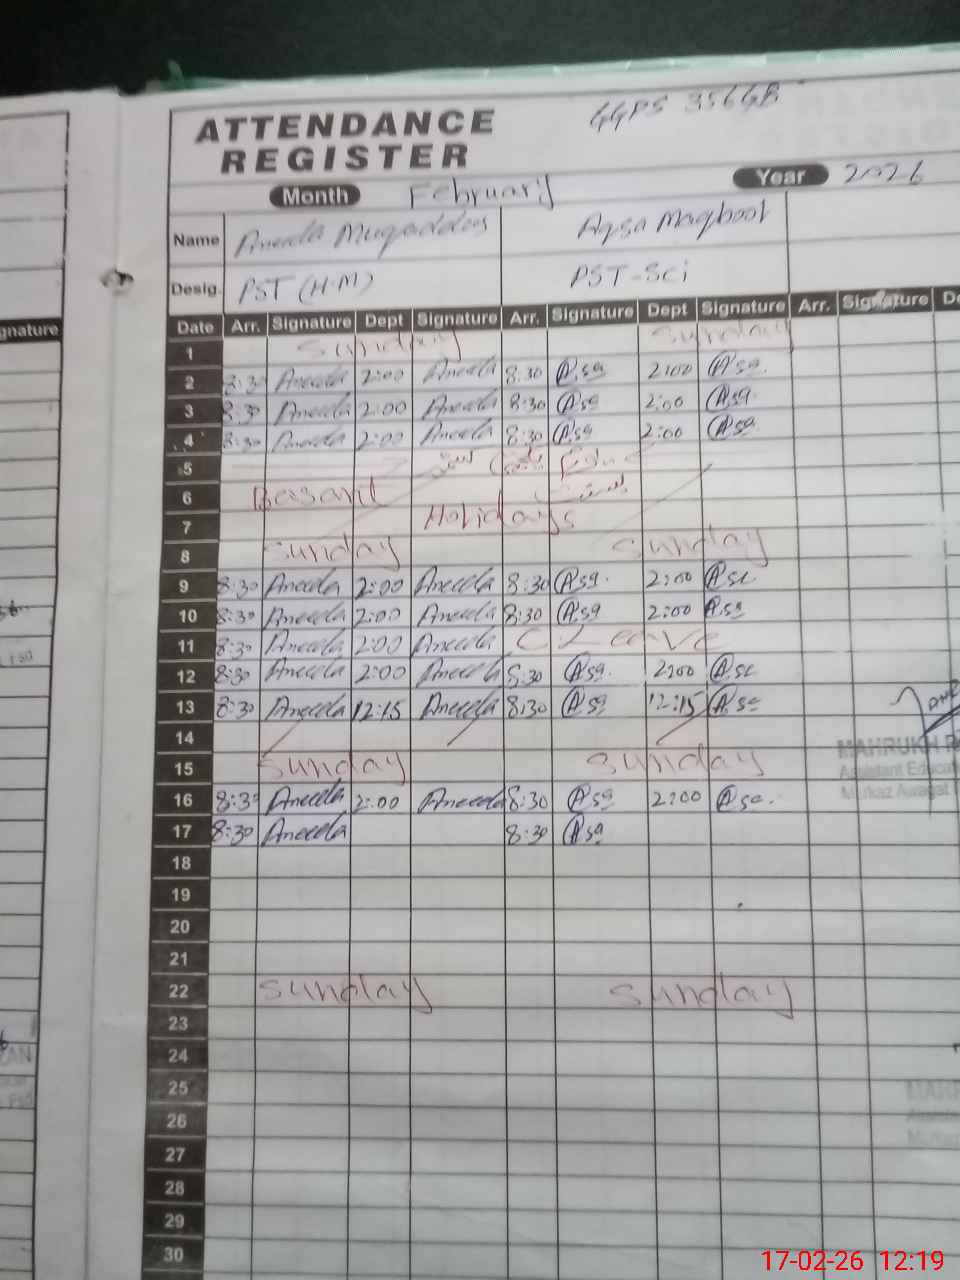 GGPS 356GB
ATTENDANCE
REGISTER
Month February Year 2026
Name Aneela Muqaddas Aqsa Maqbool
Desig. PST (H.M) PST-Sci
gnature Date Arr. Signature Dept Signature Arr. Signature Dept Signature Arr. Signature De
1 Sunday Sunday
2 8:30 Aneela 2:00 Aneela 8:30 Aqsa 2:00 Aqsa
3 8:30 Aneela 2:00 Aneela 8:30 Aqsa 2:00 Aqsa
4 8:30 Aneela 2:00 Aneela 8:30 Aqsa 2:00 Aqsa
5
6 Basant بسنت
7 Holidays
8 Sunday Sunday
9 8:30 Aneela 2:00 Aneela 8:30 Aqsa 2:00 Aqsa
10 8:30 Aneela 2:00 Aneela 8:30 Aqsa 2:00 Aqsa
11 8:30 Aneela 2:00 Aneela C Leave
12 8:30 Aneela 2:00 Aneela 8:30 Aqsa 2:00 Aqsa
13 8:30 Aneela 12:15 Aneela 8:30 Aqsa 12:15 Aqsa
14
MAHRUKH
Assistant Educat
Markaz Awagat
15 Sunday Sunday
16 8:30 Aneela 2:00 Aneela 8:30 Aqsa 2:00 Aqsa
17 8:30 Aneela 8:30 Aqsa
18
19
20
21
22 Sunday Sunday
23
24
25
26
27
28
29
30
17-02-26 12:19